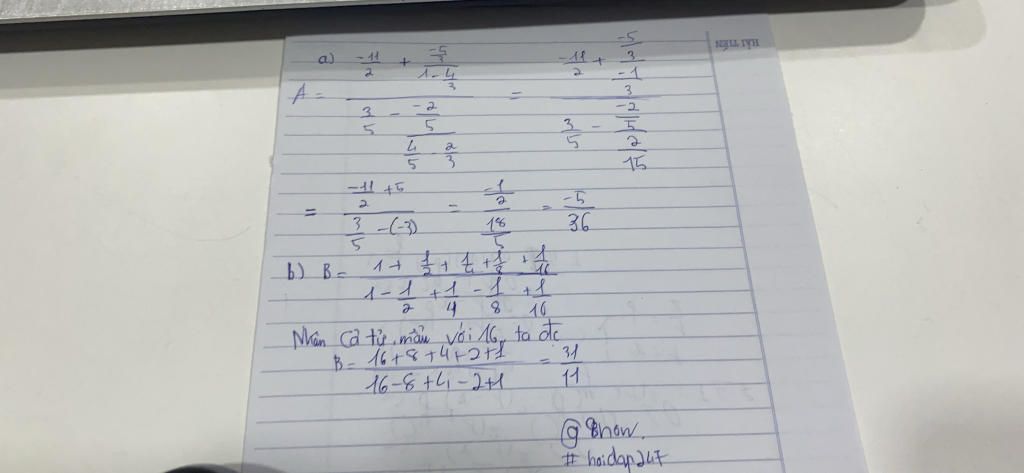 HẢI TIẾN
a) A = (-11/2 + (-5/3)/(1-4/3))/(3/5 - (-2/5)/(4/5-2/3)) = (-11/2 + (-5/3)/(-1/3))/(3/5 - (-2/5)/(2/15))
= (-11/2 +5)/(3/5 -(-3)) = (-1/2)/(18/5) = -5/36
b) B = (1+1/2+1/4+1/8+1/16)/(1-1/2+1/4-1/8+1/16)
Nhân cả tử, mẫu với 16, ta đc
B = (16+8+4+2+1)/(16-8+4-2+1) = 31/11
# hoidap247